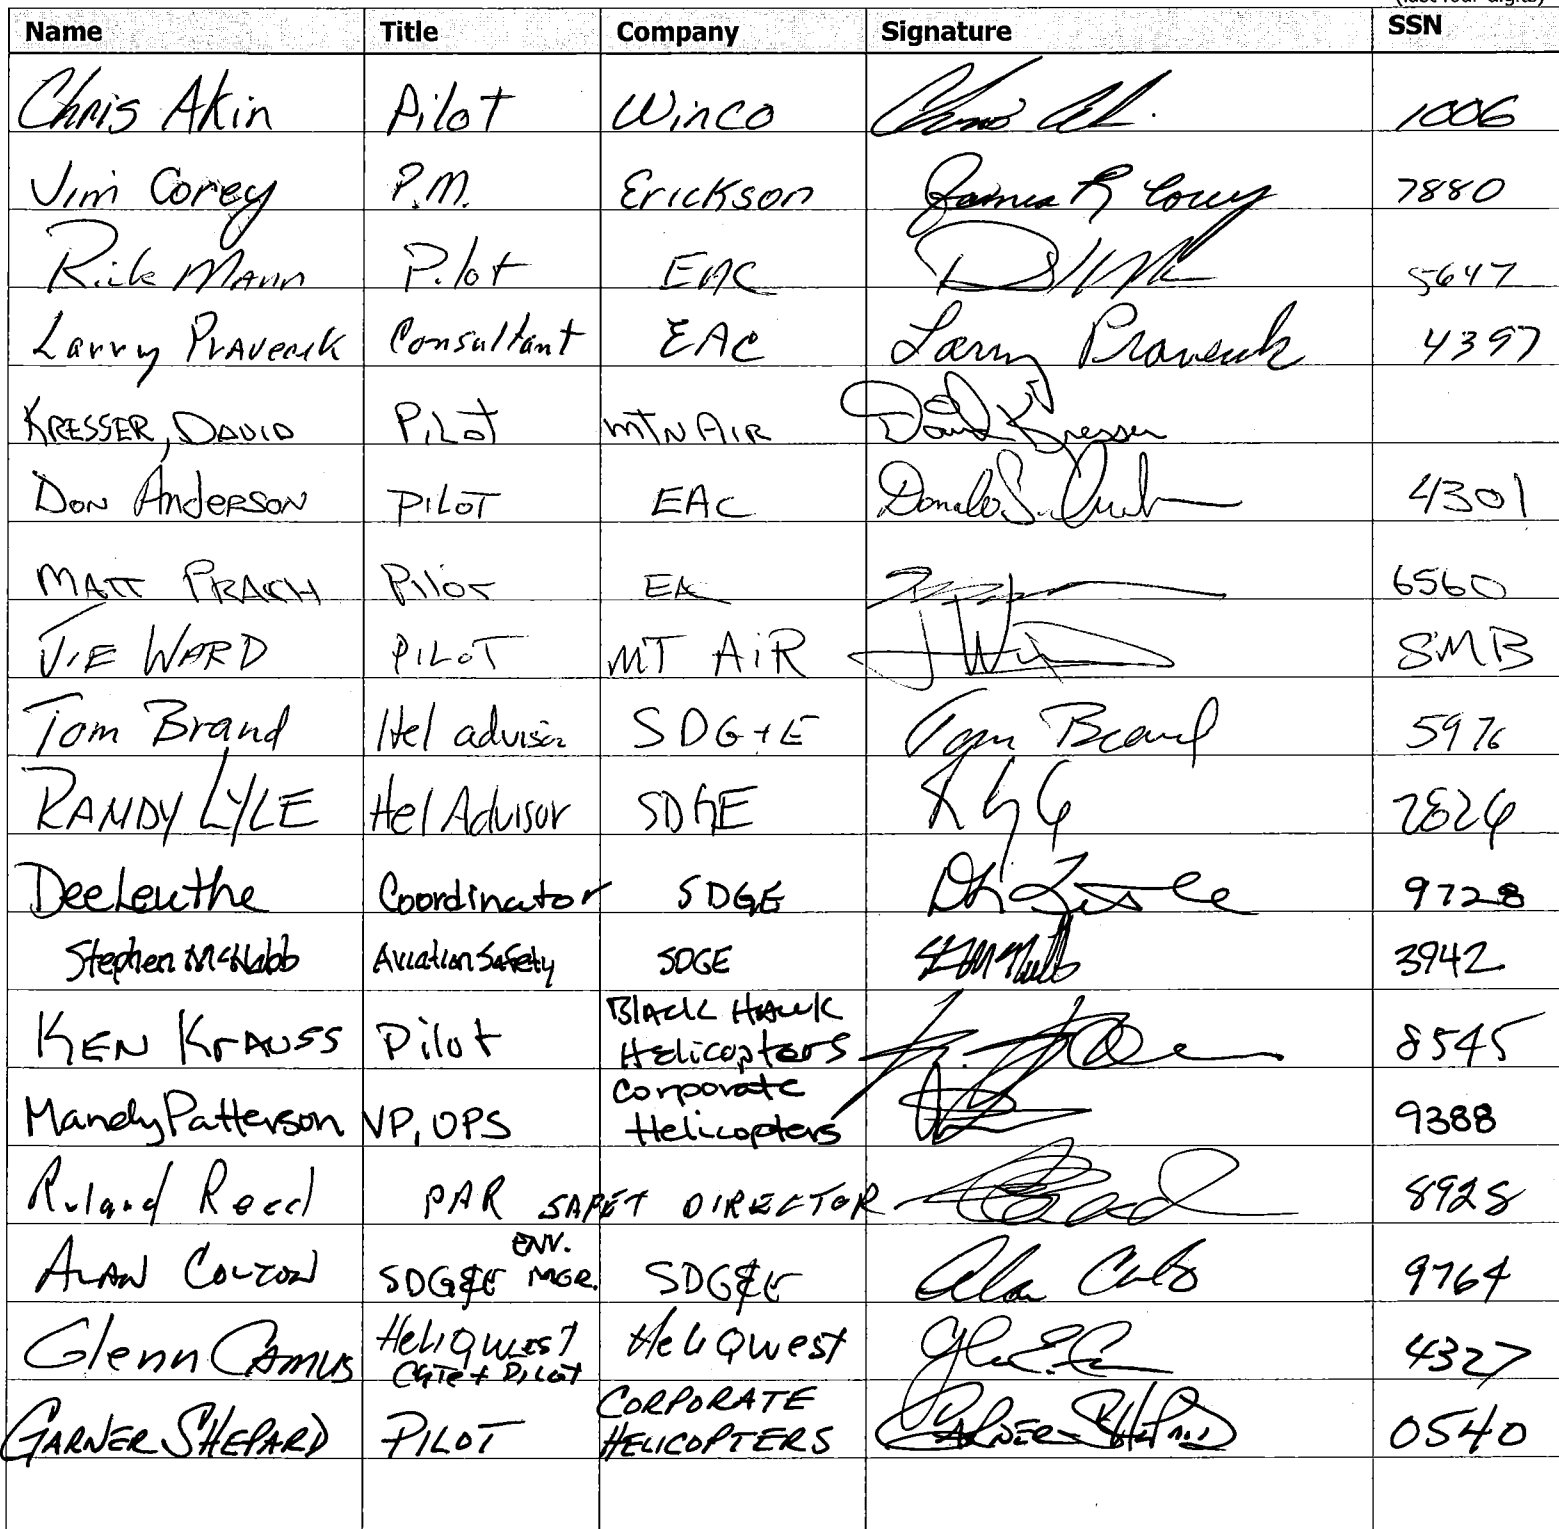 (last four digits)
Name Title Company Signature SSN
Chris Akin Pilot Winco 1006
Jim Corey P.M. Erickson James R Corey 7880
Rick Mann Pilot EAC 5647
Larry Pravecek Consultant EAC Larry Pravecek 4397
KRESSER, DAVID PILOT MTN AIR David Kresser
Don Anderson PILOT EAC 4301
MATT Pilot EAC 6560
WARD PILOT MT AiR
Tom Brand Hel advisor SDG+E Tom Brand 5976
RANDY LYLE Hel Advisor SDGE
Dee Leuthe Coordinator SDGE 9728
Stephen McNabb Aviation Safety SDGE 3942
KEN KRAUSS Pilot Black Hawk Helicopters 8545
Mandy Patterson VP, OPS Corporate Helicopters 9388
Roland Reed PAR SAFET DIRECTOR 8928
ALAN COLTON SDG&E ENV. MGR. SDG&E 9764
Glenn Camus HeliQwest Pilot HeliQwest 4327
GARNER SHEPARD PILOT CORPORATE HELICOPTERS 0540